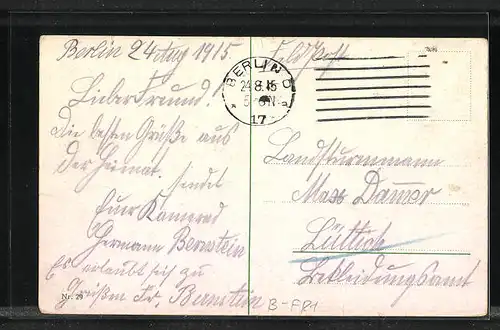 Berlin 24 Aug 1915
Feldpost
BERLIN O
24.8.15
5-6N
17
Lieber Freund!
Die besten Grüße aus
der Heimat sendet
Euer Kamerad
Hermann Bernstein
Es erlaubt sich zu
Grüßen Fr. Bernstein
Landsturmmann
Max
Lüttich
Bekleidungsamt
Nr. 29